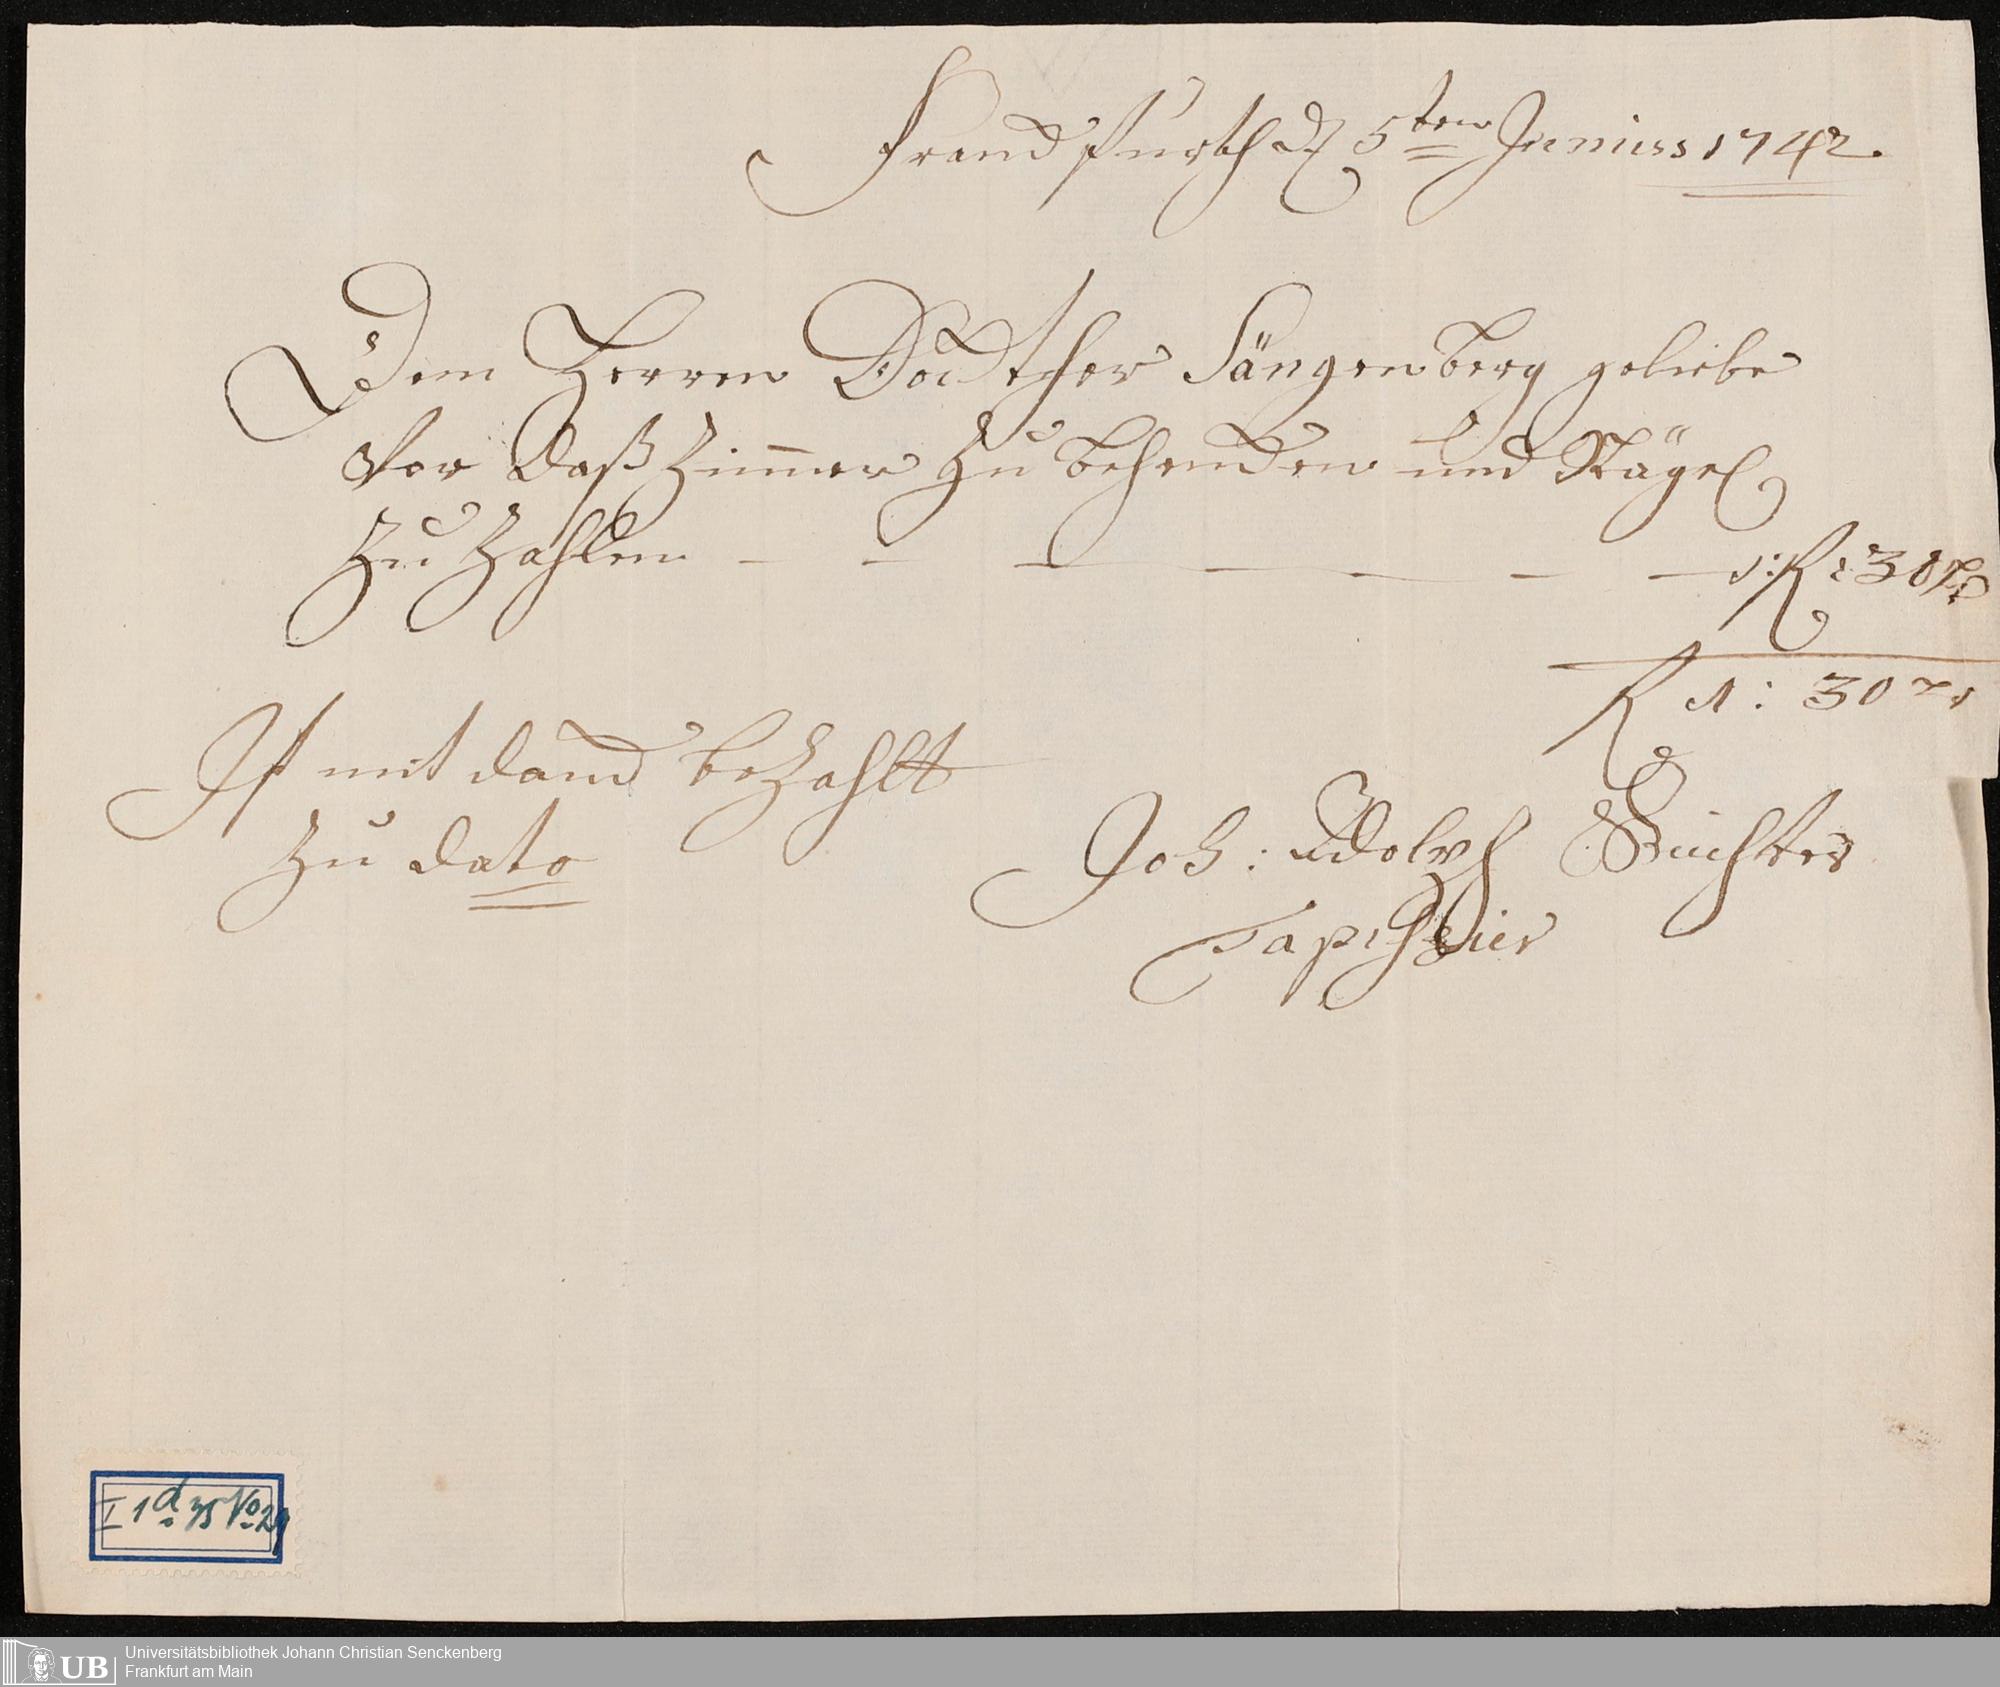 Franckfurth d 5ten Junius 1742.
Dem Herren Dockthor Sängenberg geliebe
Vor daß Zimmer zu behencken und Nägel
zu Zahlen - - - - - - - 1: R: 30 xr
R 1: 30 xr
Ist mit danck bezahlt
zu dato
Joh: Adolph
Tapetzier
I 1 d 35 No 29
Universitätsbibliothek Johann Christian Senckenberg
UB Frankfurt am Main